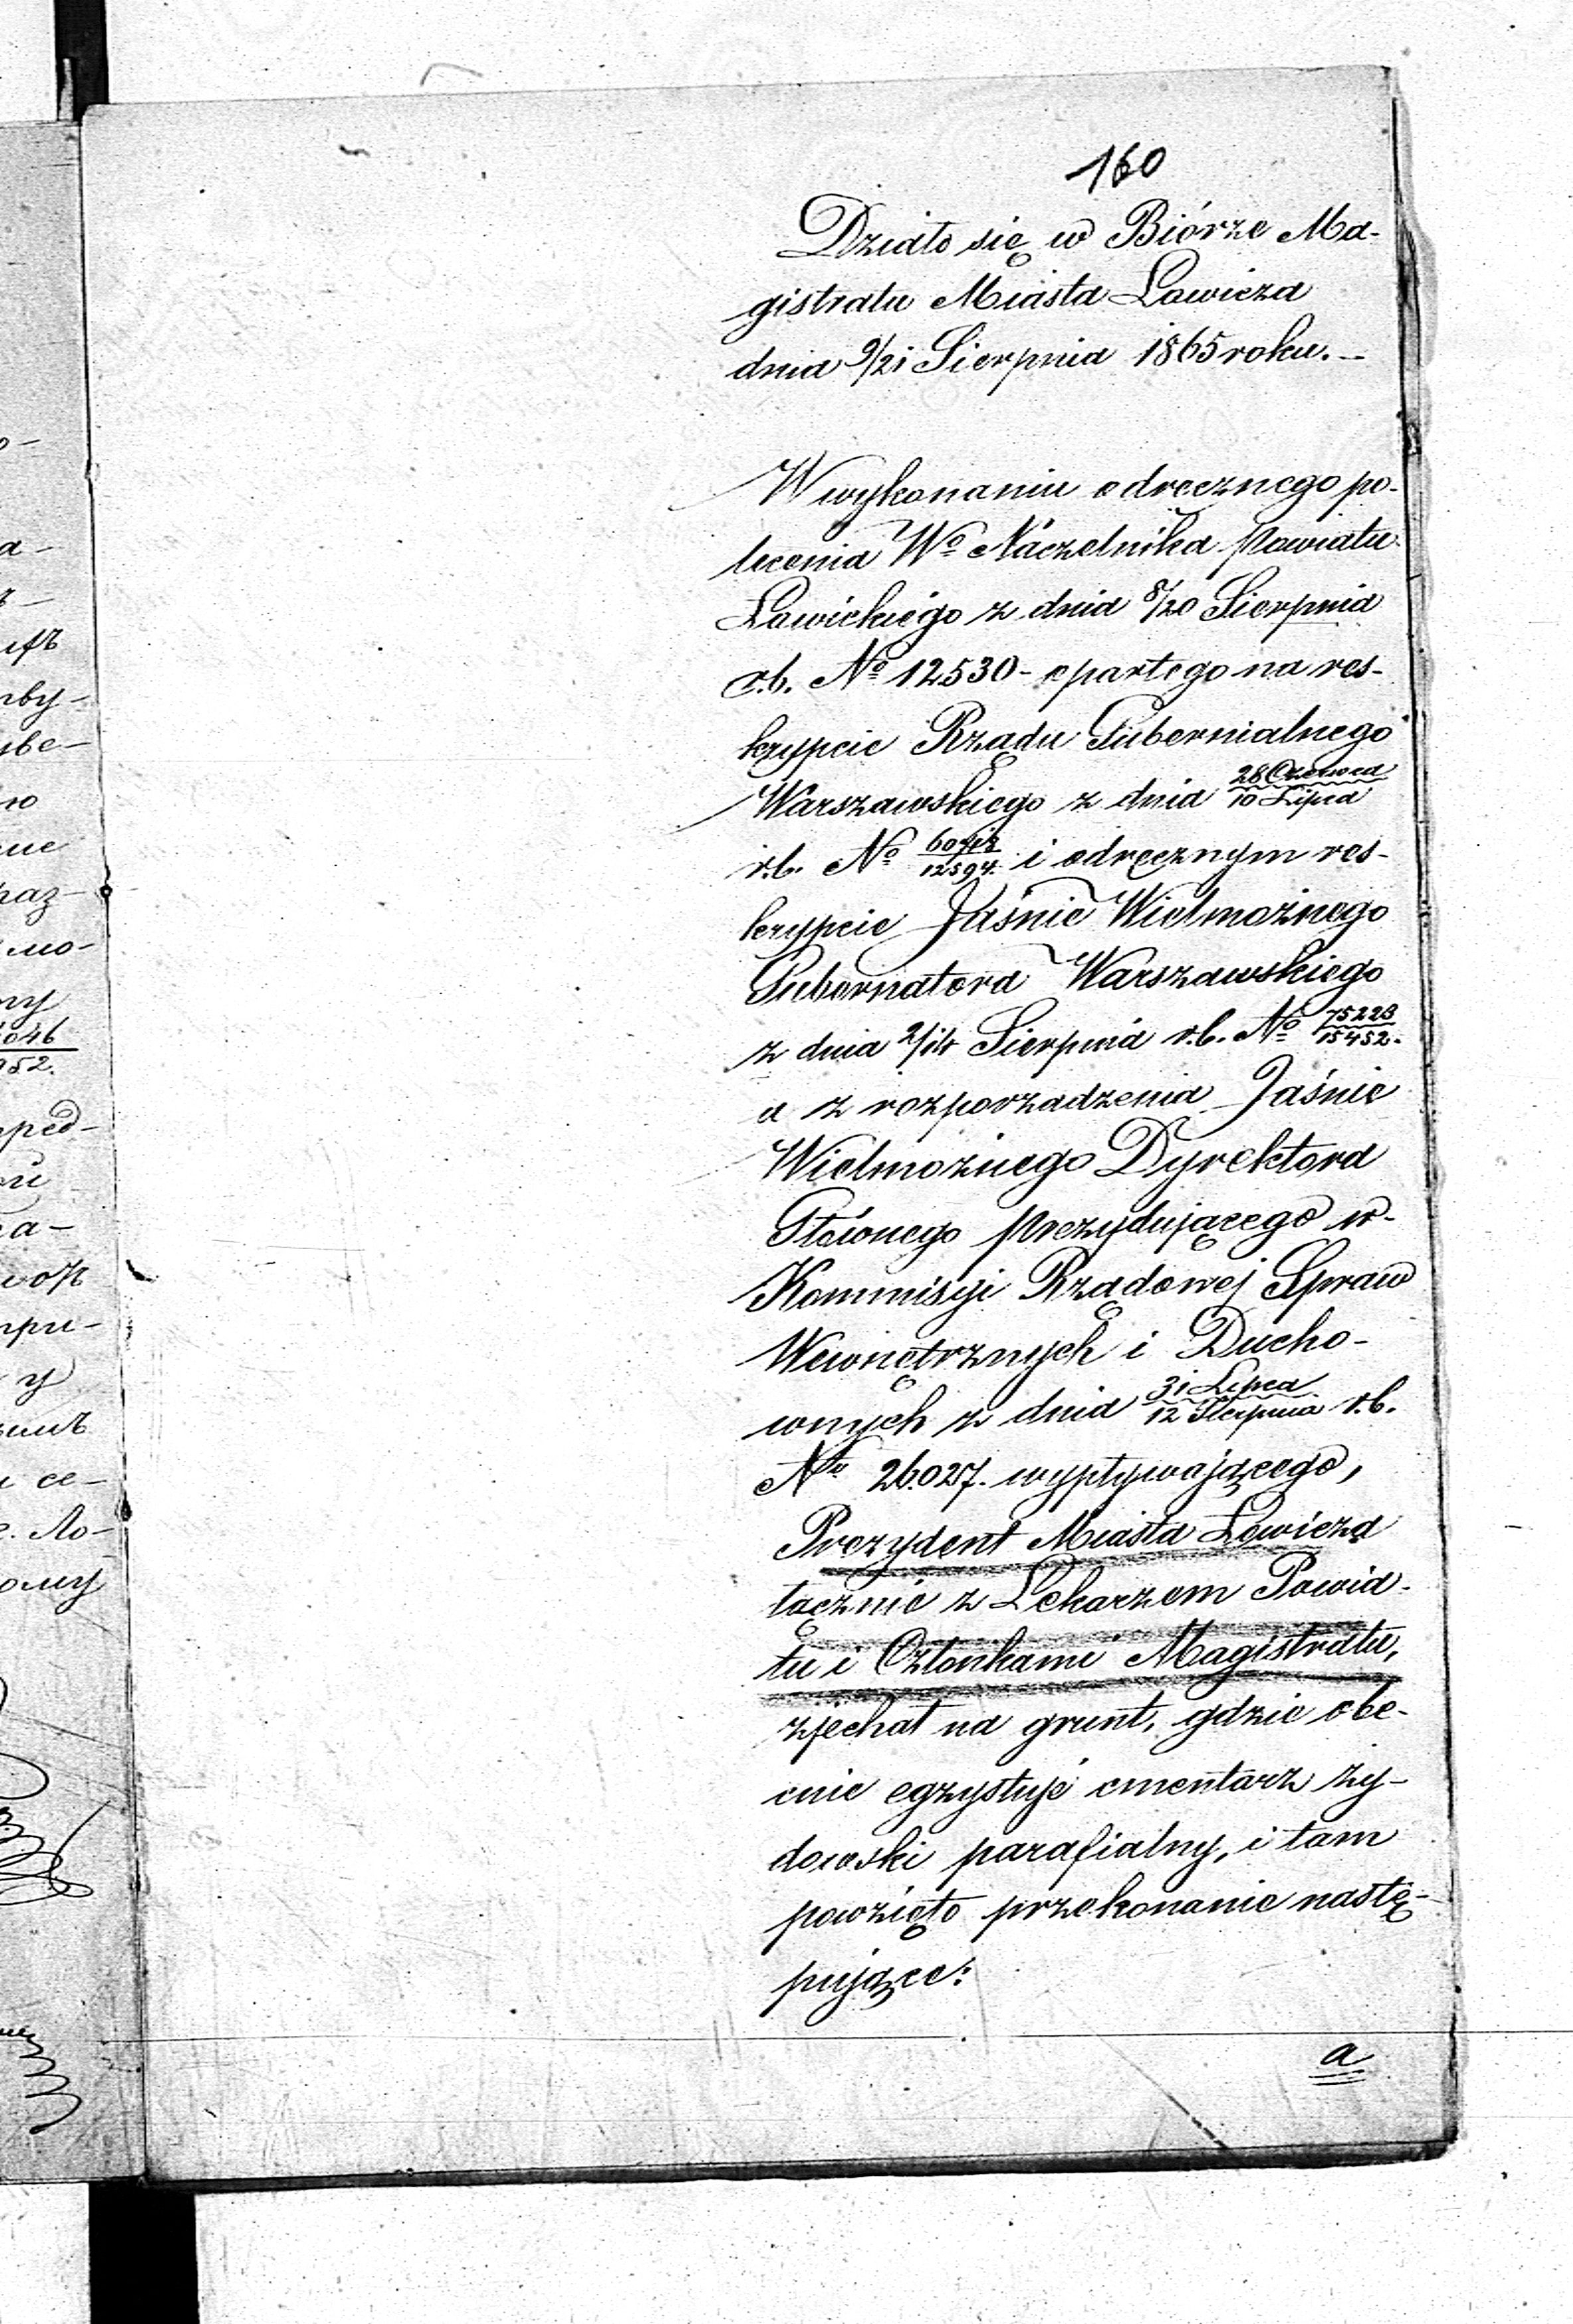 160
Działo się w Biórze Ma-
gistratu Miasta Łowicza
dnia 9/21 Sierpnia 1865 roku. -
W wykonaniu odręcznego po-
lecenia Wº Naczelnika Powiatu
Łowickiego z dnia 8/20 Sierpnia
r.b. Nº 12530 - opartego na res-
krypcie Rządu Gubernialnego
Warszawskiego z dnia 28 Czerwca / 10 Lipca
r.b. Nº /12594. i odręcznym res-
krypcie Jaśnie Wielmożnego
Gubernatora Warszawskiego
z dnia 2/14 Sierpnia r.b. Nº 75223/15452.
a z rozporządzenia Jaśnie
Wielmożnego Dyrektora
Głównego Prezydującego w
Kommisyi Rządowej Spraw
Wewnętrznych i Ducho-
wnych z dnia 31 Lipca / 12 Sierpnia r.b.
Nº 26.027. wypływającego,
Prezydent Miasta Łowicza
łącznie z Lekarzem Powia-
tu i Członkami Magistratu,
zjechał na grunt, gdzie obe-
cnie egzystuje cmentarz ży-
dowski parafialny, i tam
powzięto przekonanie nastę-
pujące:
a